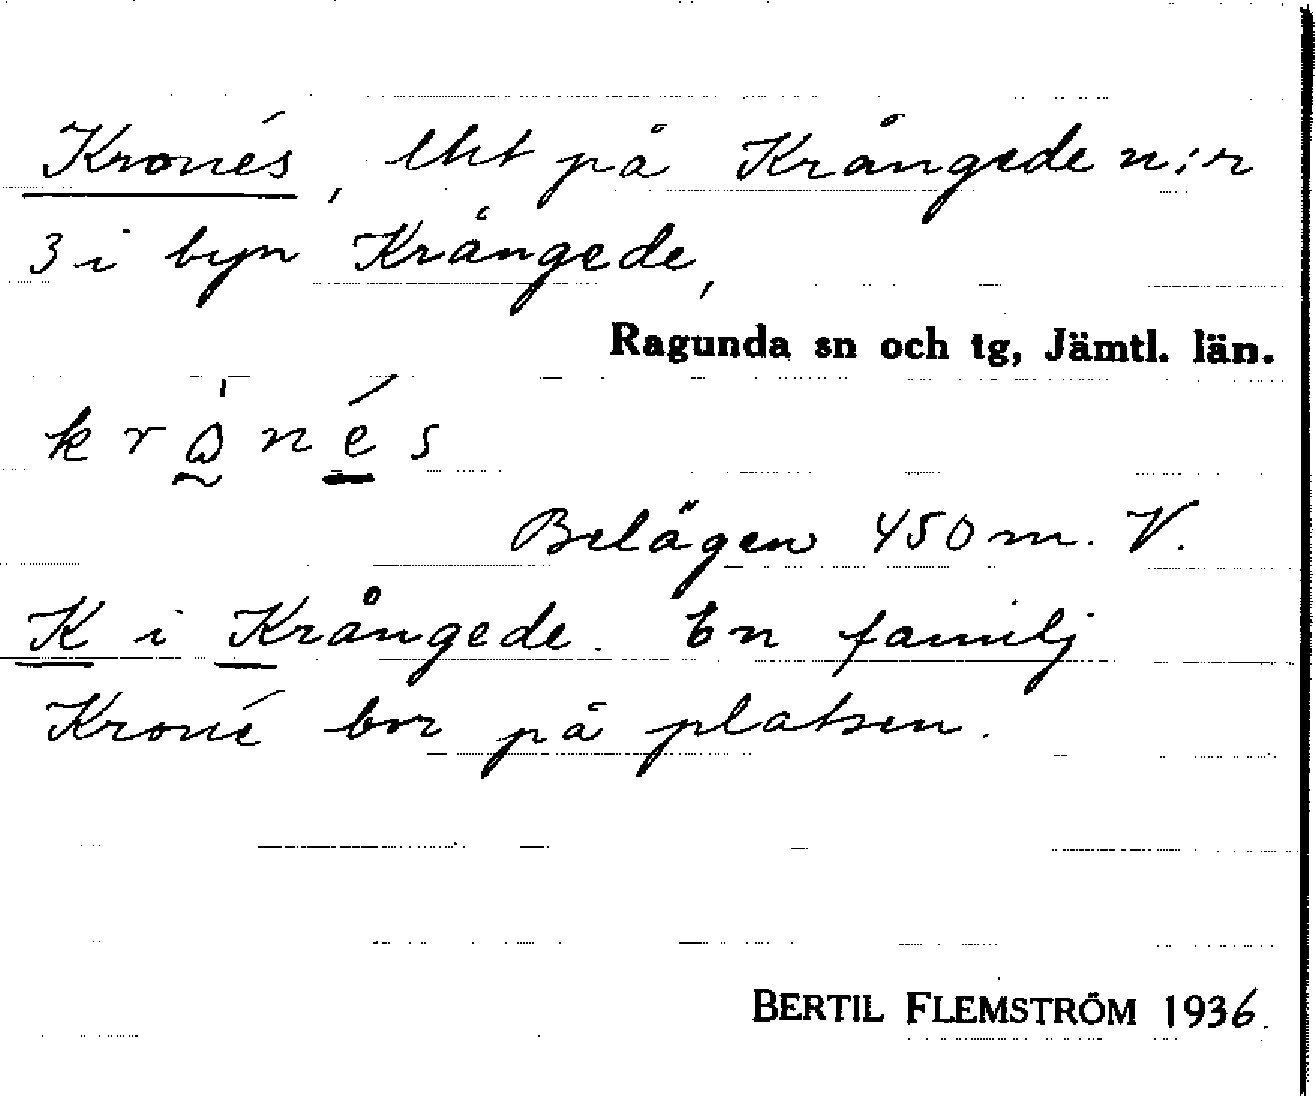 Kronés, lht på Krångede n:r
3 i byn Krångede,
Ragunda sn och tg, Jämtl. län.
Belägen 450 m. V.
K i Krångede. En familj
Kroné bor på platsen.
BERTIL FLEMSTRÖM 1936.